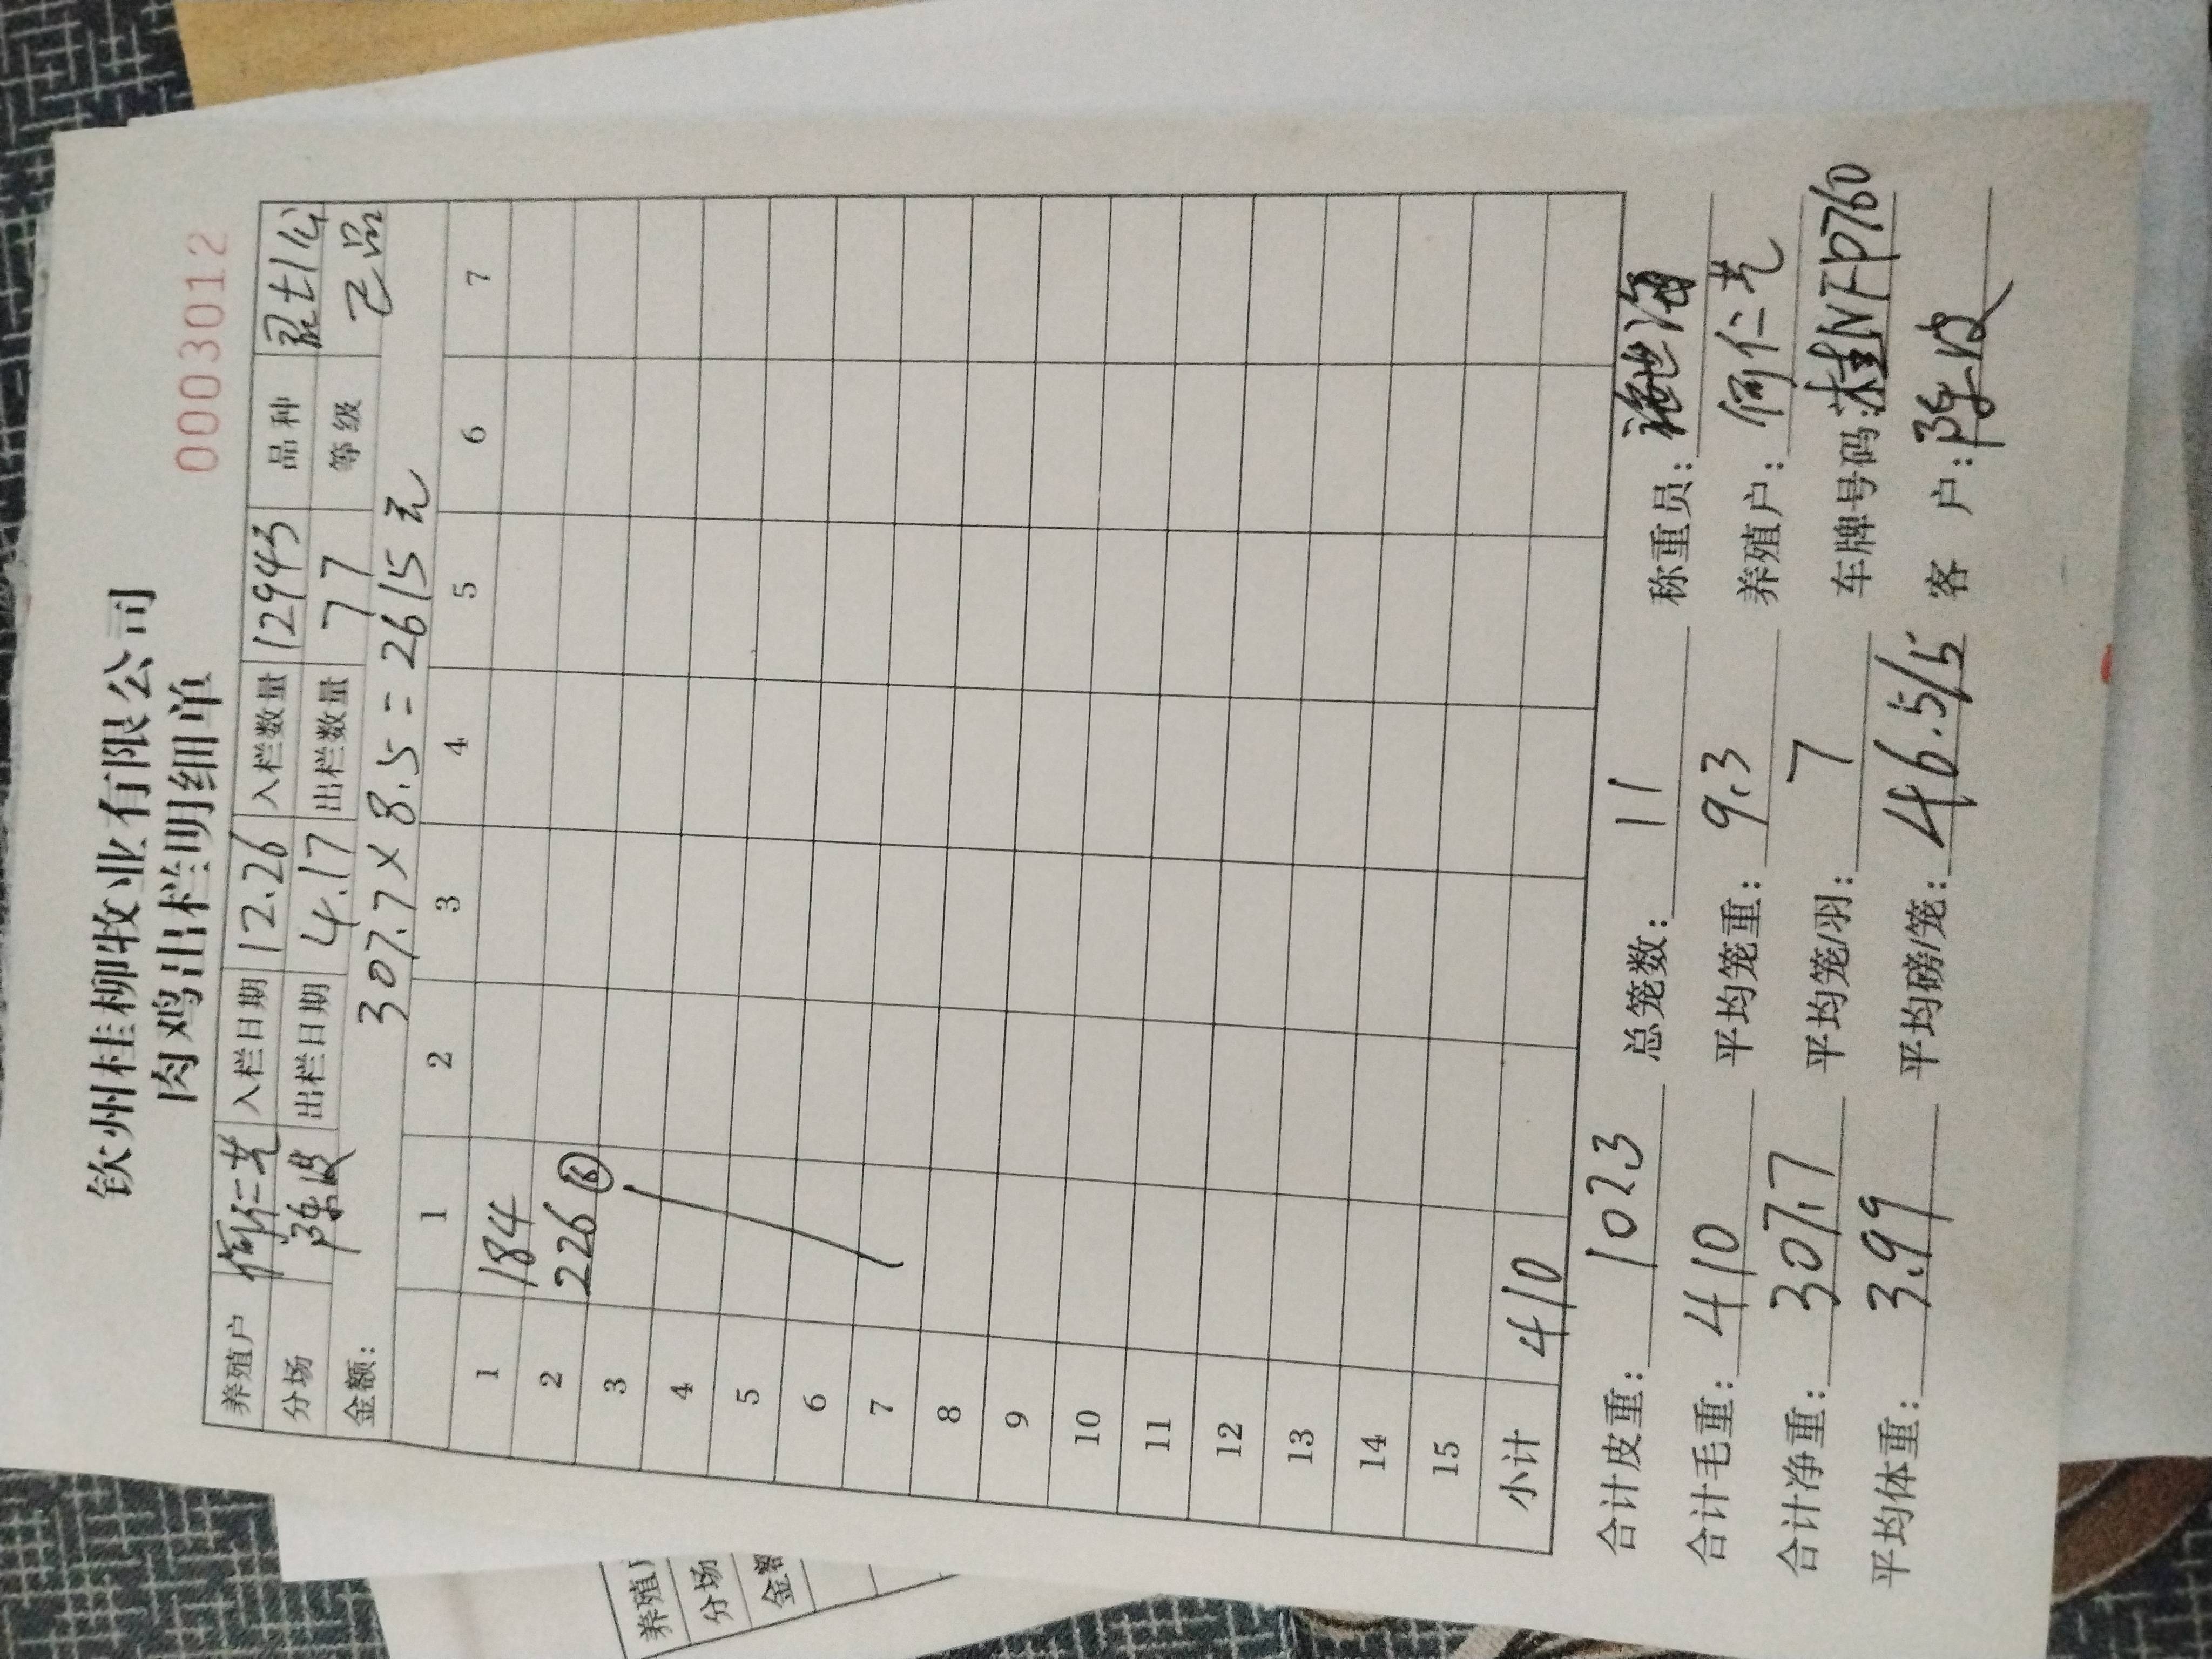 钦州桂柳牧业有限公司
肉鸡出栏明细单
0003012
养殖户 何仁芝 入栏日期 12.26 入栏数量 12943 品种
分场 陈波 出栏日期 4.17 出栏数量 77 等级 乙品
金额: 307.7×8.5=2615元
1 2 3 4 5 6 7
1 184
2 226 ⑥
3
4
5
6
7
8
9
10
11
12
13
14
15
小计 410
合计皮重: 102.3 总笼数: 11 称重员:
合计毛重: 410 平均笼重: 9.3 养殖户: 何仁芝
合计净重: 307.7 平均笼/羽: 7 车牌号码: 桂NFP760
平均体重: 3.99 平均磅/笼: 46.5/5 客户: 陈波
养殖户
分场
金额